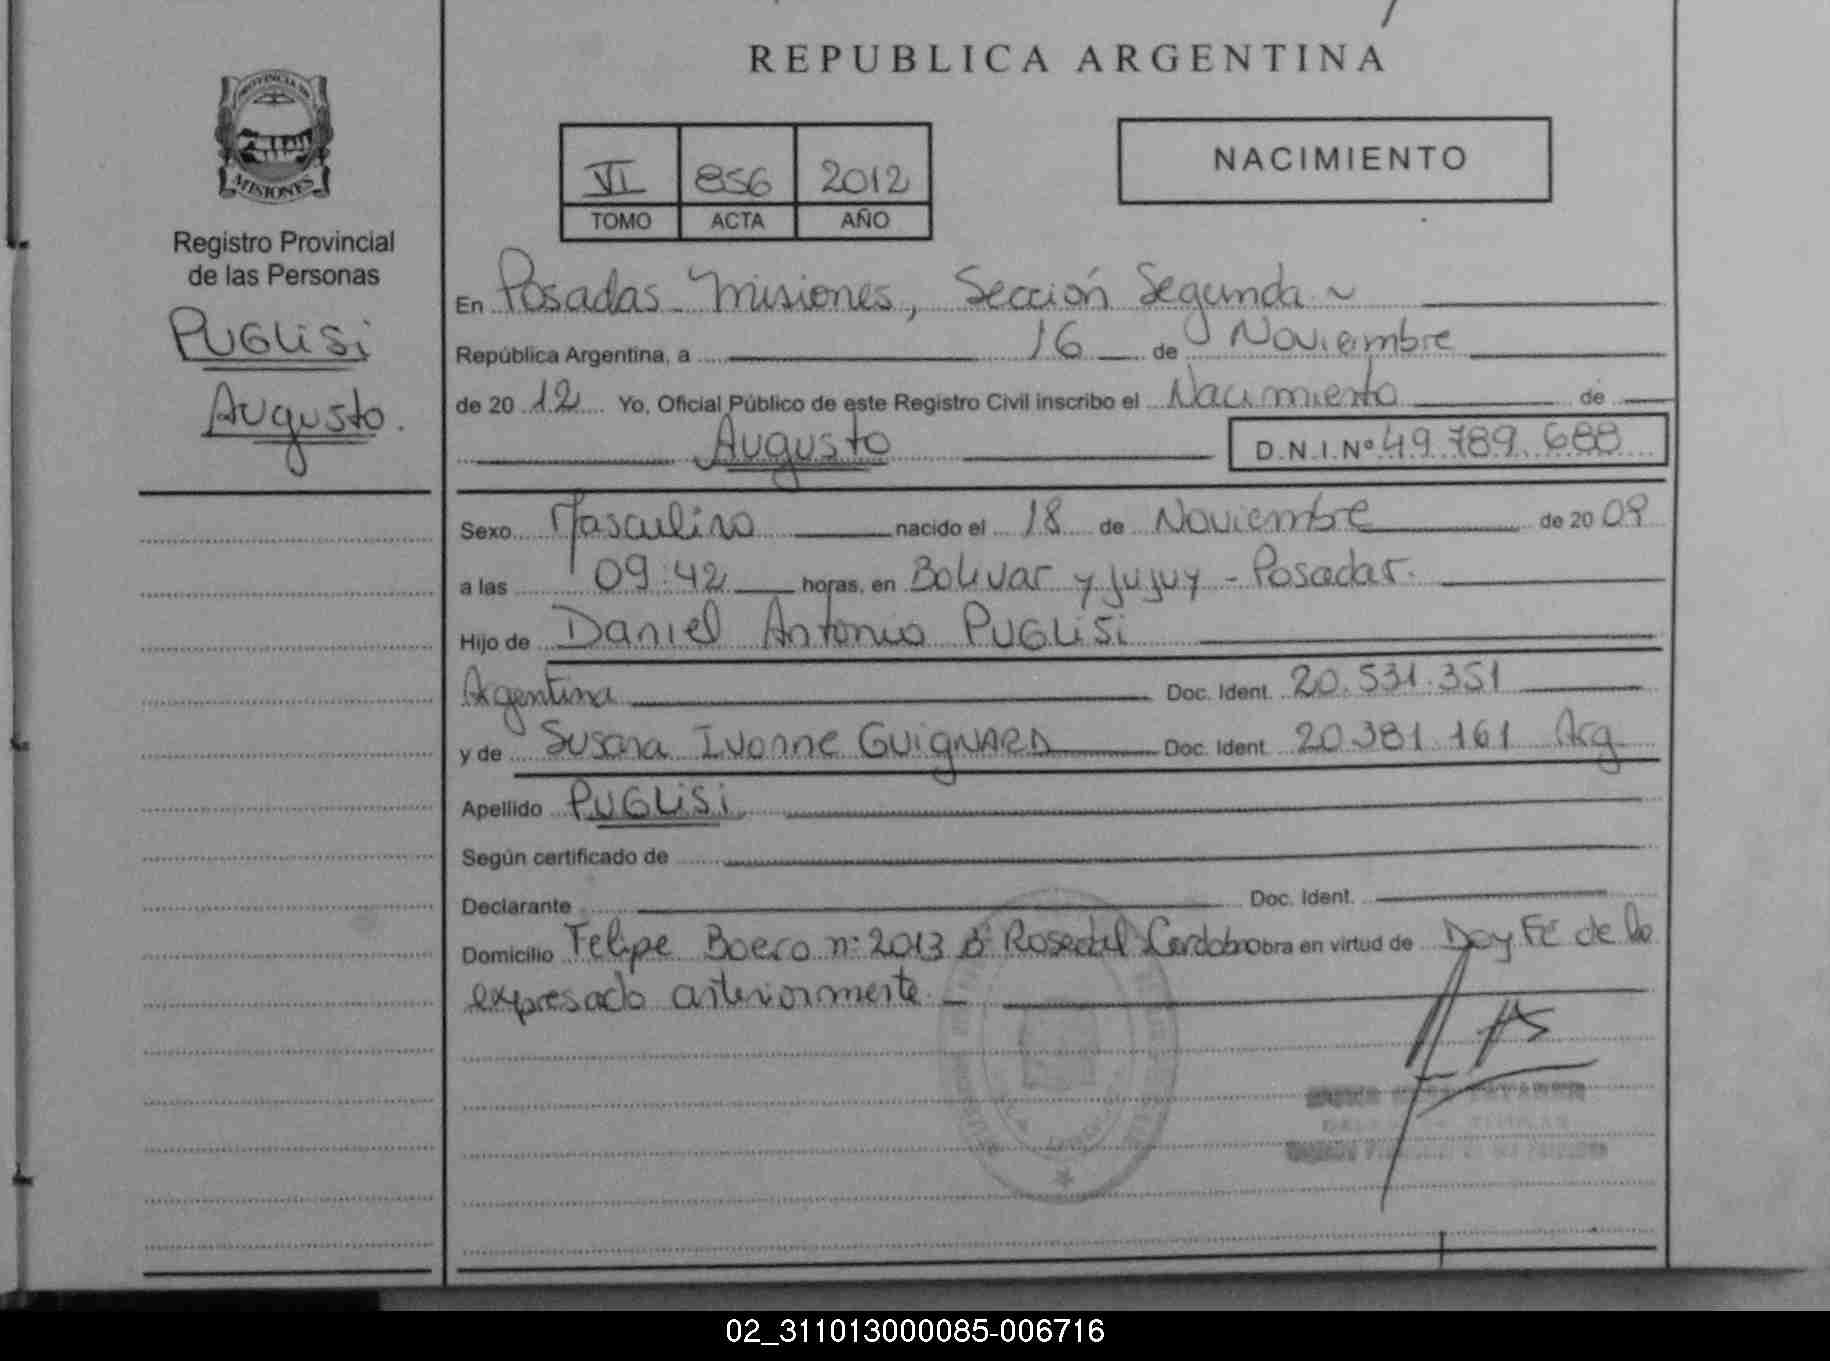 REPUBLICA ARGENTINA
PROVINCIA DE
MISIONES
Registro Provincial
de las Personas
PUGLISI
Augusto.
VI 856 2012
TOMO ACTA AÑO
NACIMIENTO
En Posadas Misiones, Sección Segunda ~
República Argentina, a 16 de Noviembre
de 20 12 Yo, Oficial Público de este Registro Civil inscribo el Nacimiento de
Augusto D.N.I.Nº 49.789.688
Sexo Masculino nacido el 18 de Noviembre de 20 09
a las 09:42 horas, en Bolivar y Jujuy - Posadas.
Hijo de Daniel Antonio PUGLISI
Argentina Doc. Ident. 20.531.351
y de Susana Ivonne GUIGNARD Doc. Ident. 20.381.161 Arg
Apellido PUGLISI
Según certificado de
Declarante Doc. Ident.
Domicilio Felipe Boero nº 2013 Bº Rosedal Cordoba obra en virtud de Doy Fé de lo
expresado anteriormente
02_311013000085-006716